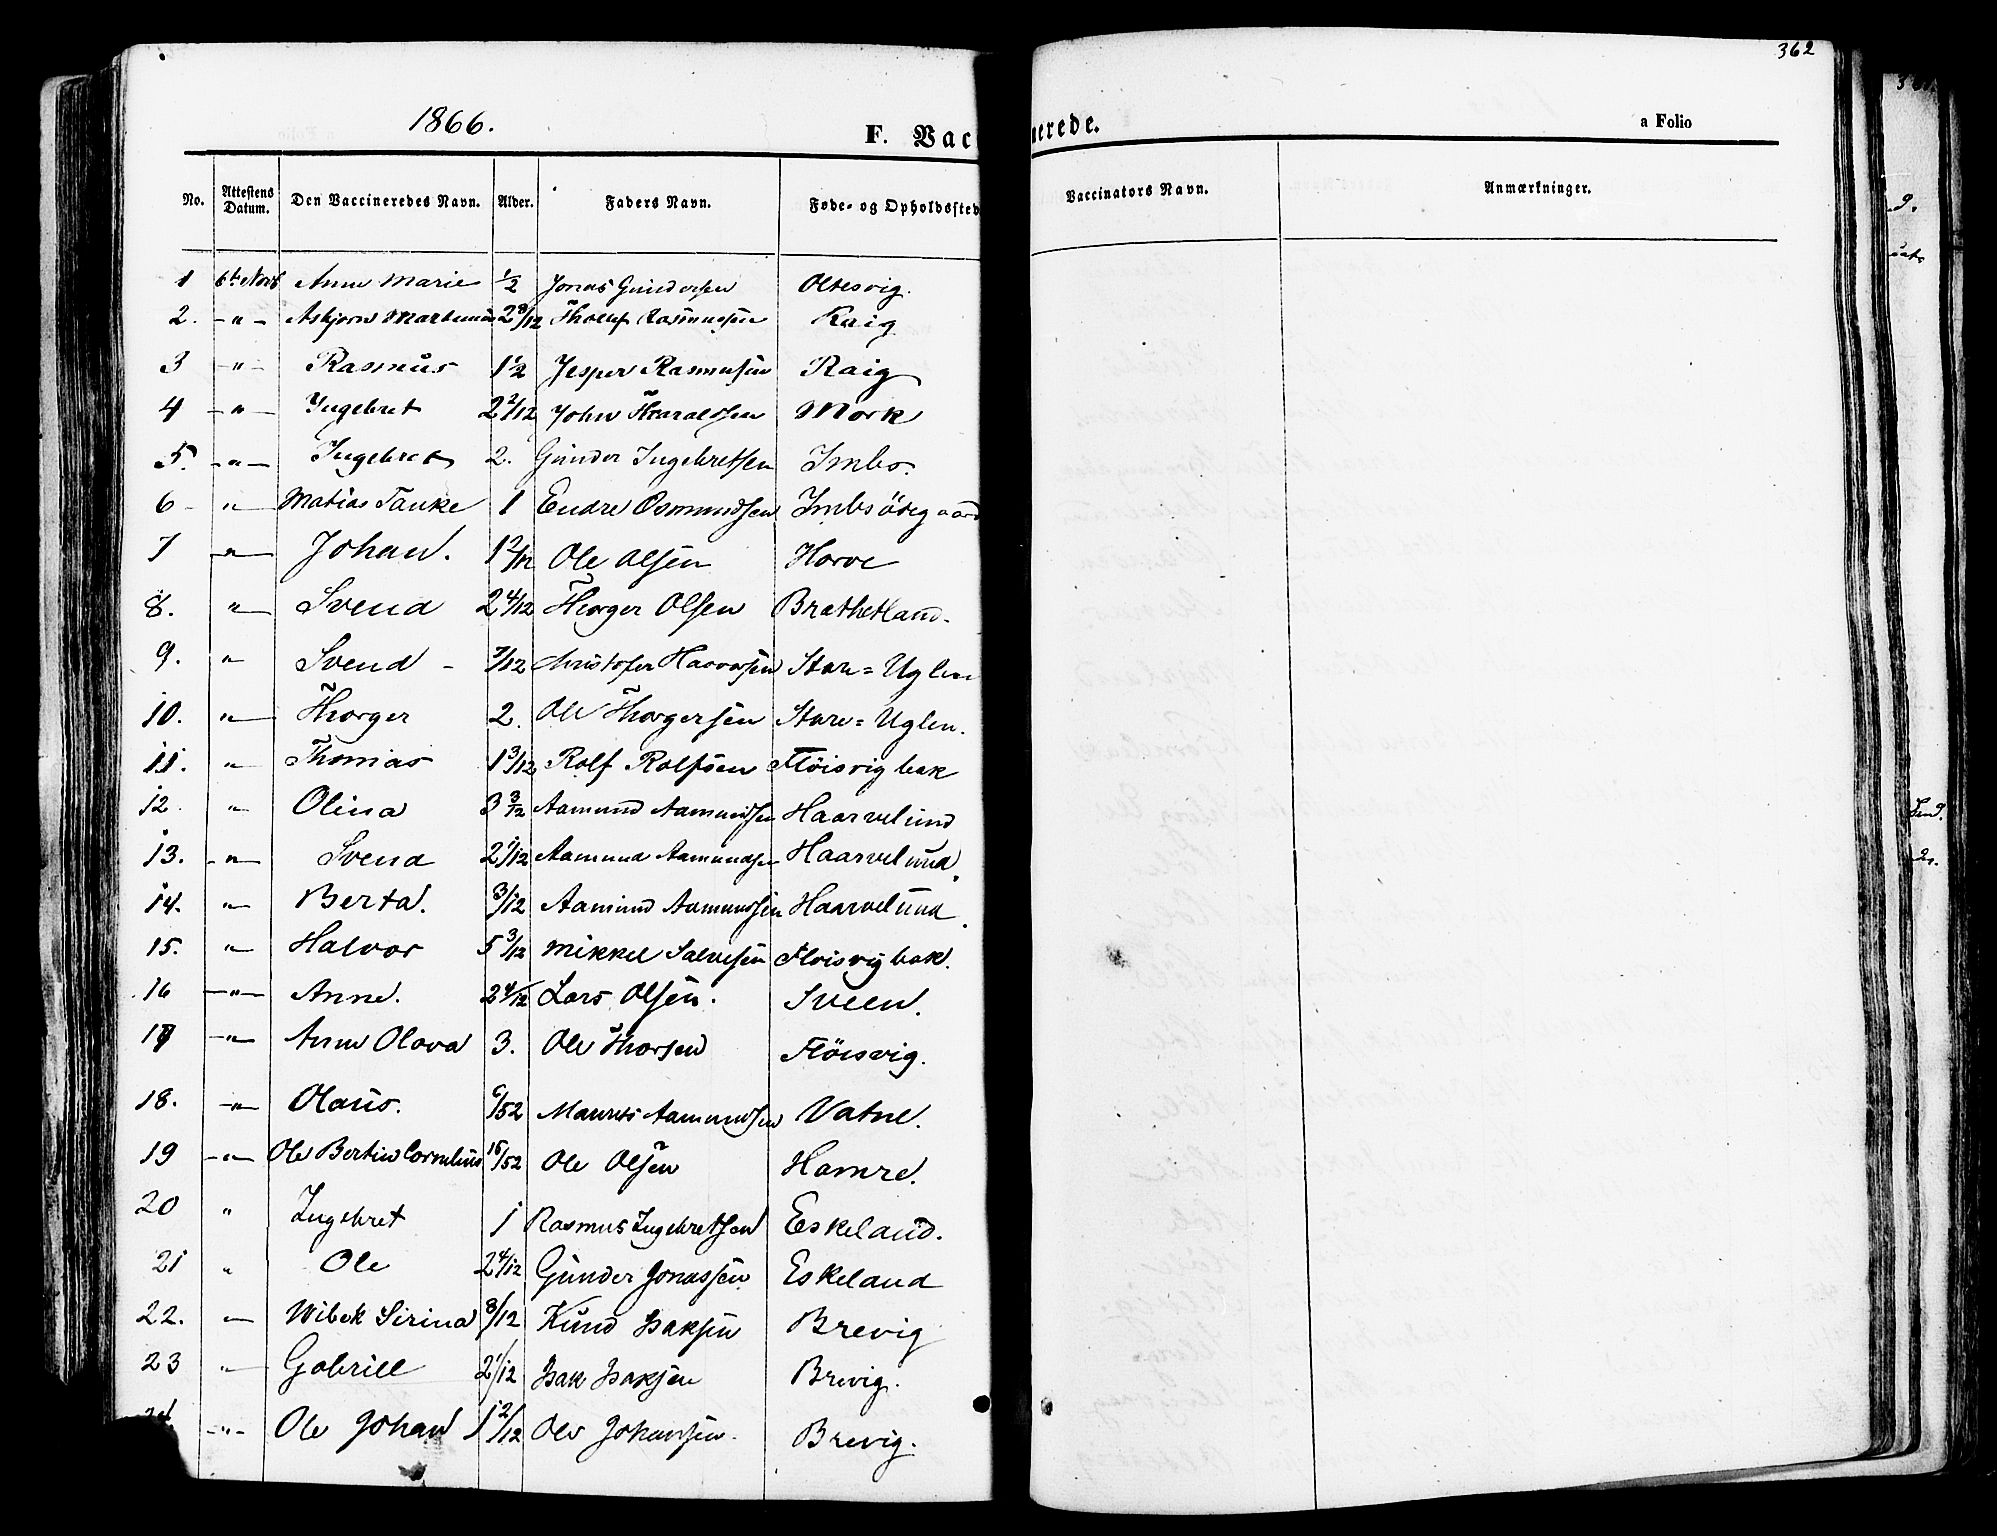 362
1866.
F. Vac
nerede.
a Folio
No. Attestens Datum. Den Vaccineredes Navn. Alder. Faders Navn. Føde- og Opholdssted
Vaccinators Navn. Anmærkninger.
1 6te Novb Anne Marie 1/2 Jonas Gundersen Oltesvig.
2. -"- Asbjørn Martinius 2 8/12 Rasmussen Raig
3 -"- Rasmus 1 1/2 Jesper Rasmussen Raig
4 -"- Ingebret 2 2/12 John Haraldsen Mork
5. -"- Ingebret 2. Gunder Ingebretsen Imbs.
6 -"- Matias Tanke 1 Endre Osmundsen Imbs östegaard
7 -"- Johan. 1 2/12 Ole Olsen Horve
8. " Svend 2 4/12 Thorger Olsen Brathetland.
9. " Svend - 7/12 Christofer Havorsen Store=Uglen
10. " Thorger 2. Ole Thorgersen Store=Uglen.
11. " Thomas 1 3/12 Rolf Rolfsen Flöisvig bak
12. " Olina 3 3/12 Aamund Aamundsen Haarvelund
13. -"- Svend 2 1/12 Aamund Aamundsen Haarvelund.
14. " Berta. 3/12 Aamund Aamundsen Haarvelund.
15. " Halvor 5 3/12 Mikkel Salvesen Floisvig bak.
16 -"- Anne. 2 4/12 Lars Olsen. Sveen.
17 -"- Anne Olava 3. Ole Thorsen Flöisvig.
18. -"- Olaus. 6/52 Maurits Aamundsen Vatne.
19 -"- Ole Bertin Cornelius 16/52 Ole Olsen Hamre.
20 " Ingebret 1 Rasmus Ingebretsen Eskeland.
21 " Ole 2 4/12 Gunder Jonassen Eskeland
22. " Wibek Sirina 8/12 Knud Isaksen Brevig
23 " Gabriel 2 1/12 Isak Isaksen Brevig.
24 -"- Ole Johan 1 2/12 Ole Johansen. Brevig.